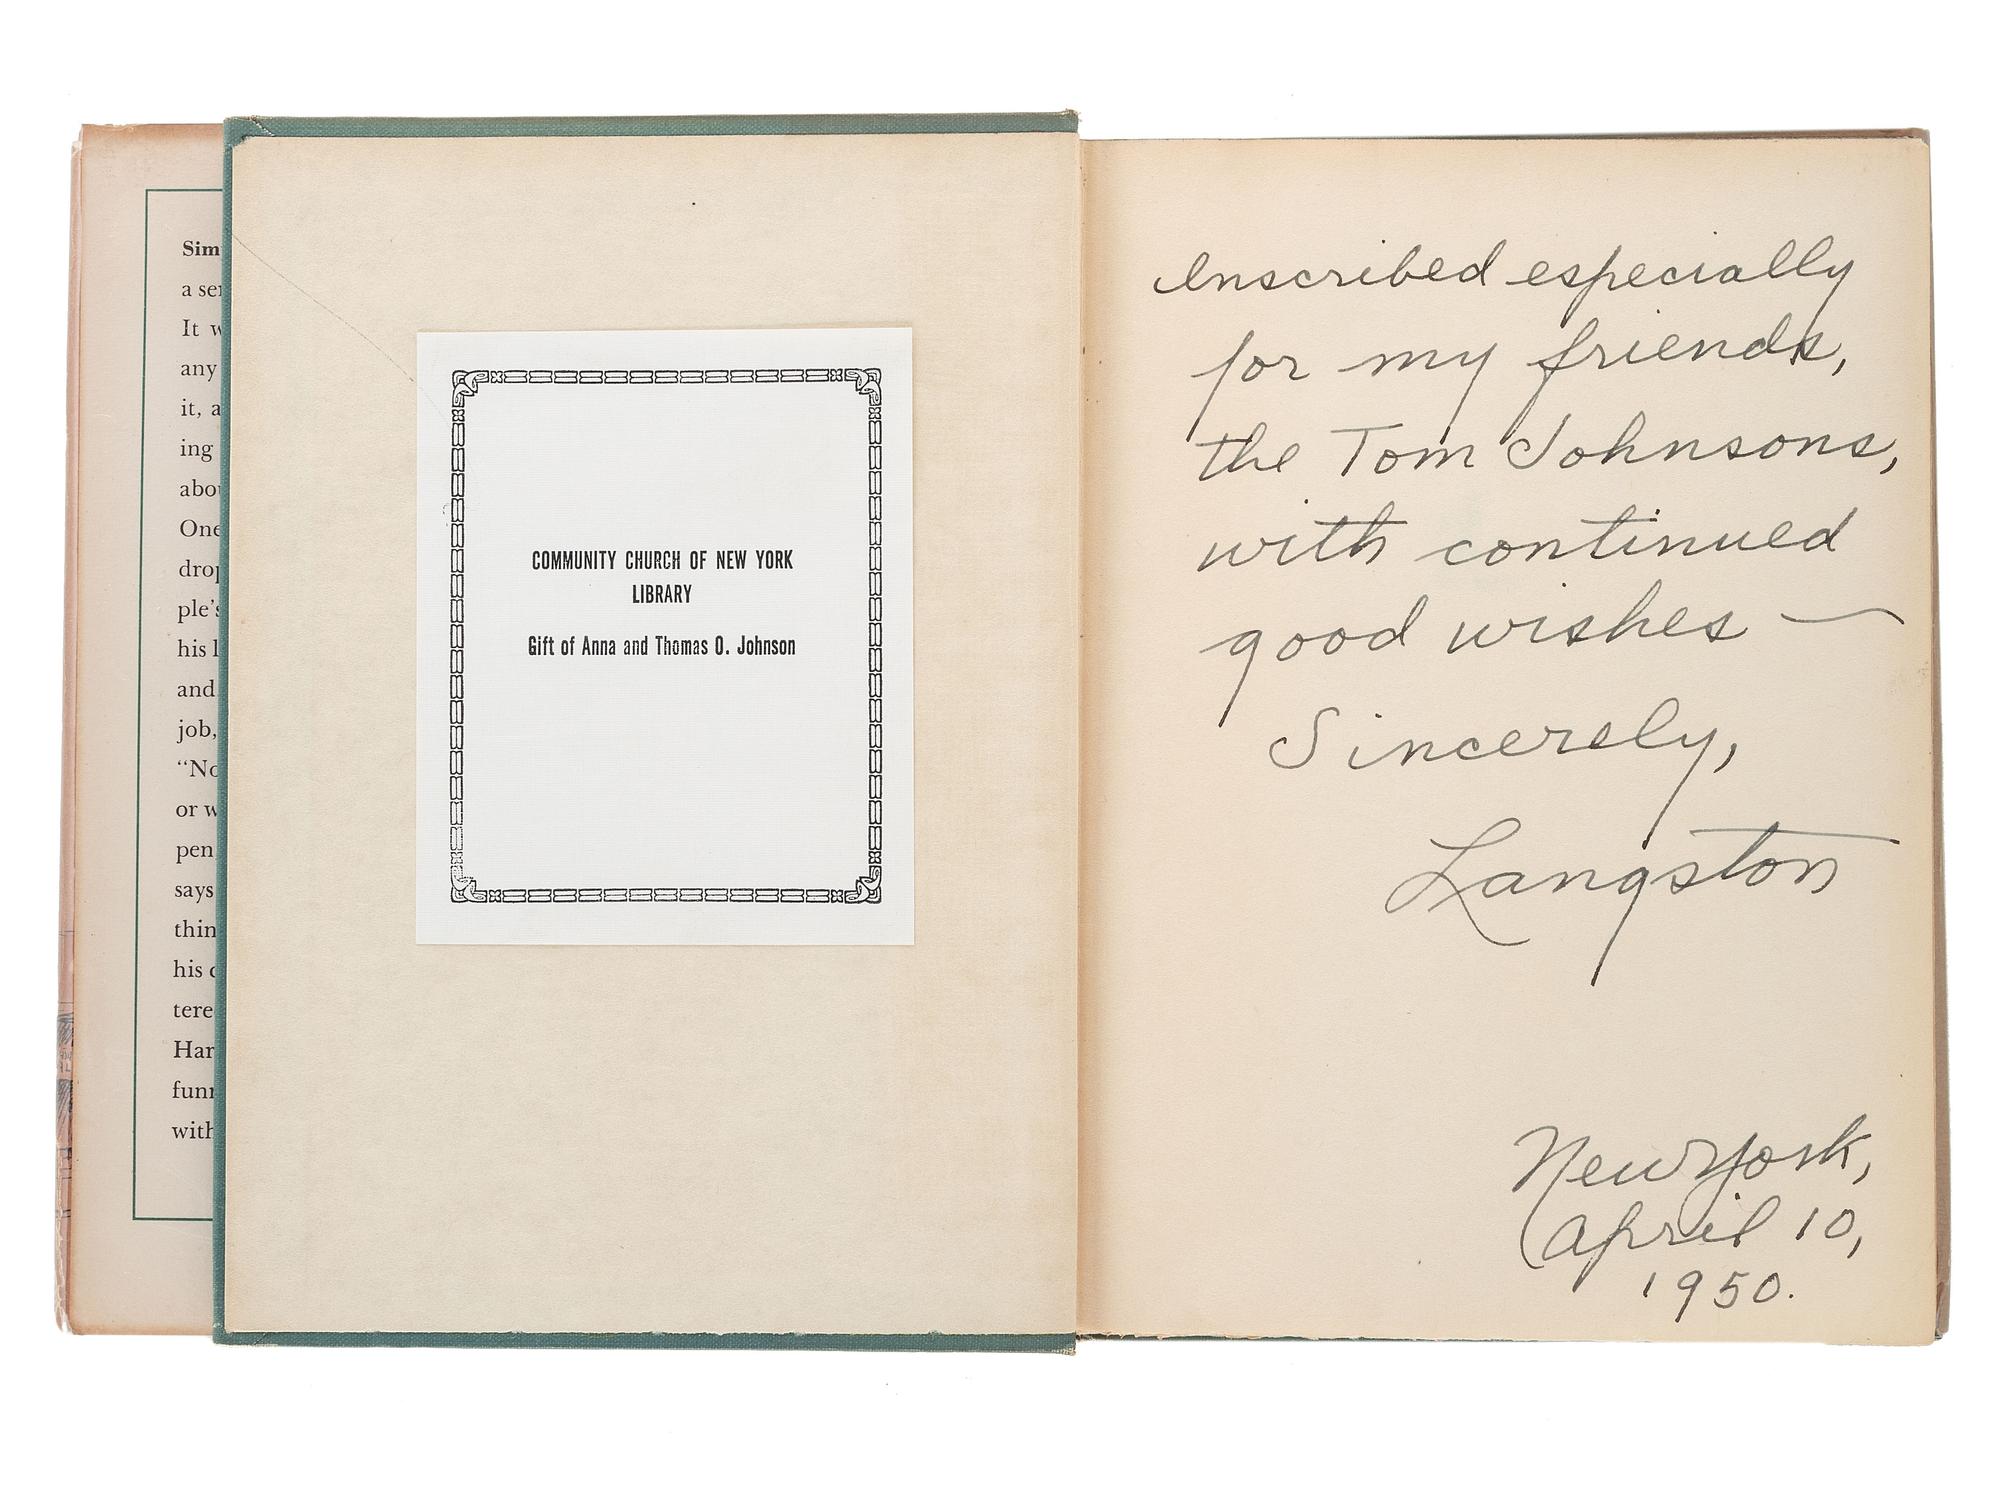 Sim
a ser
It w
any
it, a
ing
abou
One
drop
ple's
his l
and
job,
"No
or w
pen
says
thin
his
tere
Har
funn
with
COMMUNITY CHURCH OF NEW YORK
LIBRARY
Gift of Anna and Thomas O. Johnson
Inscribed especially
for my friends,
the Tom Johnsons,
with continued
good wishes —
Sincerely,
Langston
New York,
April 10,
1950.